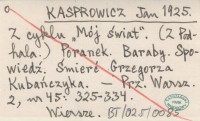 KASPROWICZ Jan 1925.
Z cyklu „Mój świat". (Z Pod-
hala.) Poranek. Baraby. Spo-
wiedź. Śmierć Grzegorza
Kubańczyka. — Prz. Warsz.
2, nr 45: 325-334.
Wiersze. BT/025/0035